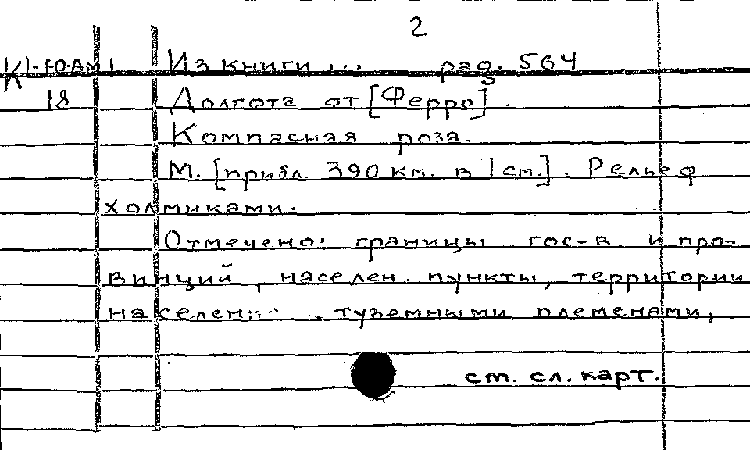 2
К 1-Ю.Ам 1 Из книги ... ряд. 564
18 Долгота от [Ферро].
Компасная роза.
М. [прибл 390 км. в 1 см.]. Рельеф
холмиками.
Отмечено: границы гос-в и про-
винций, населен. пункты, территории
населен. туземными племенами,
см. сл. карт.